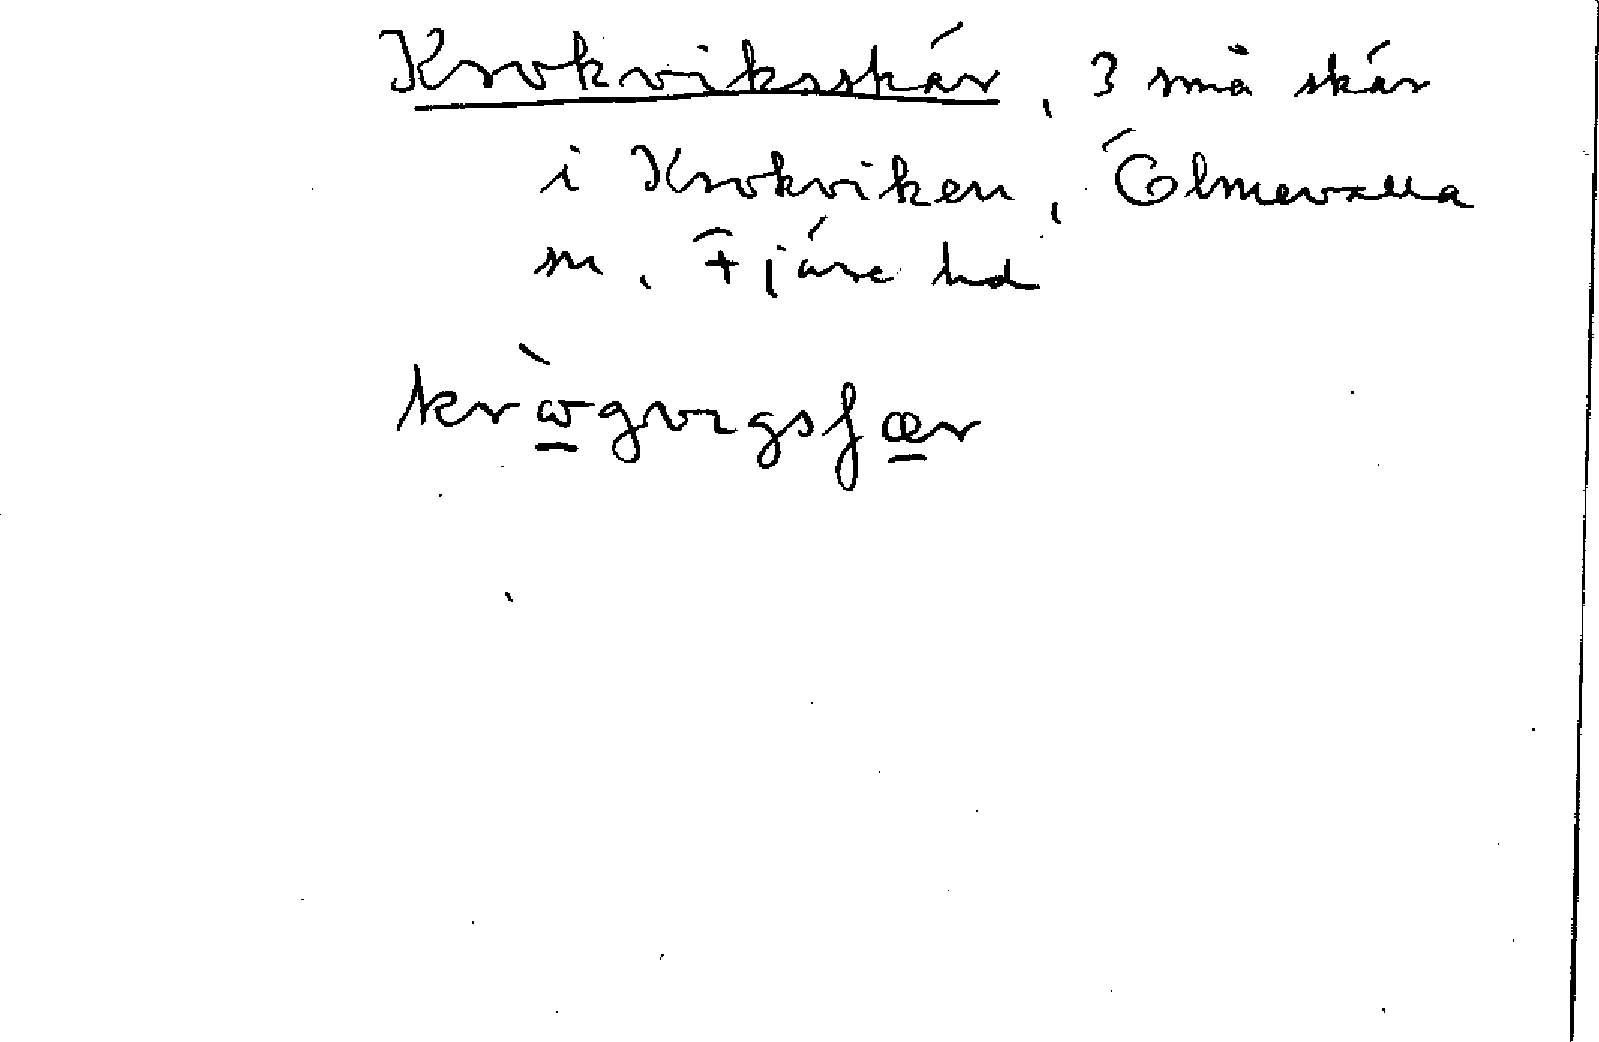 Krokviksskär, 3 små skär
i Krokviken, Ölmevalla
sn, Fjäre hd